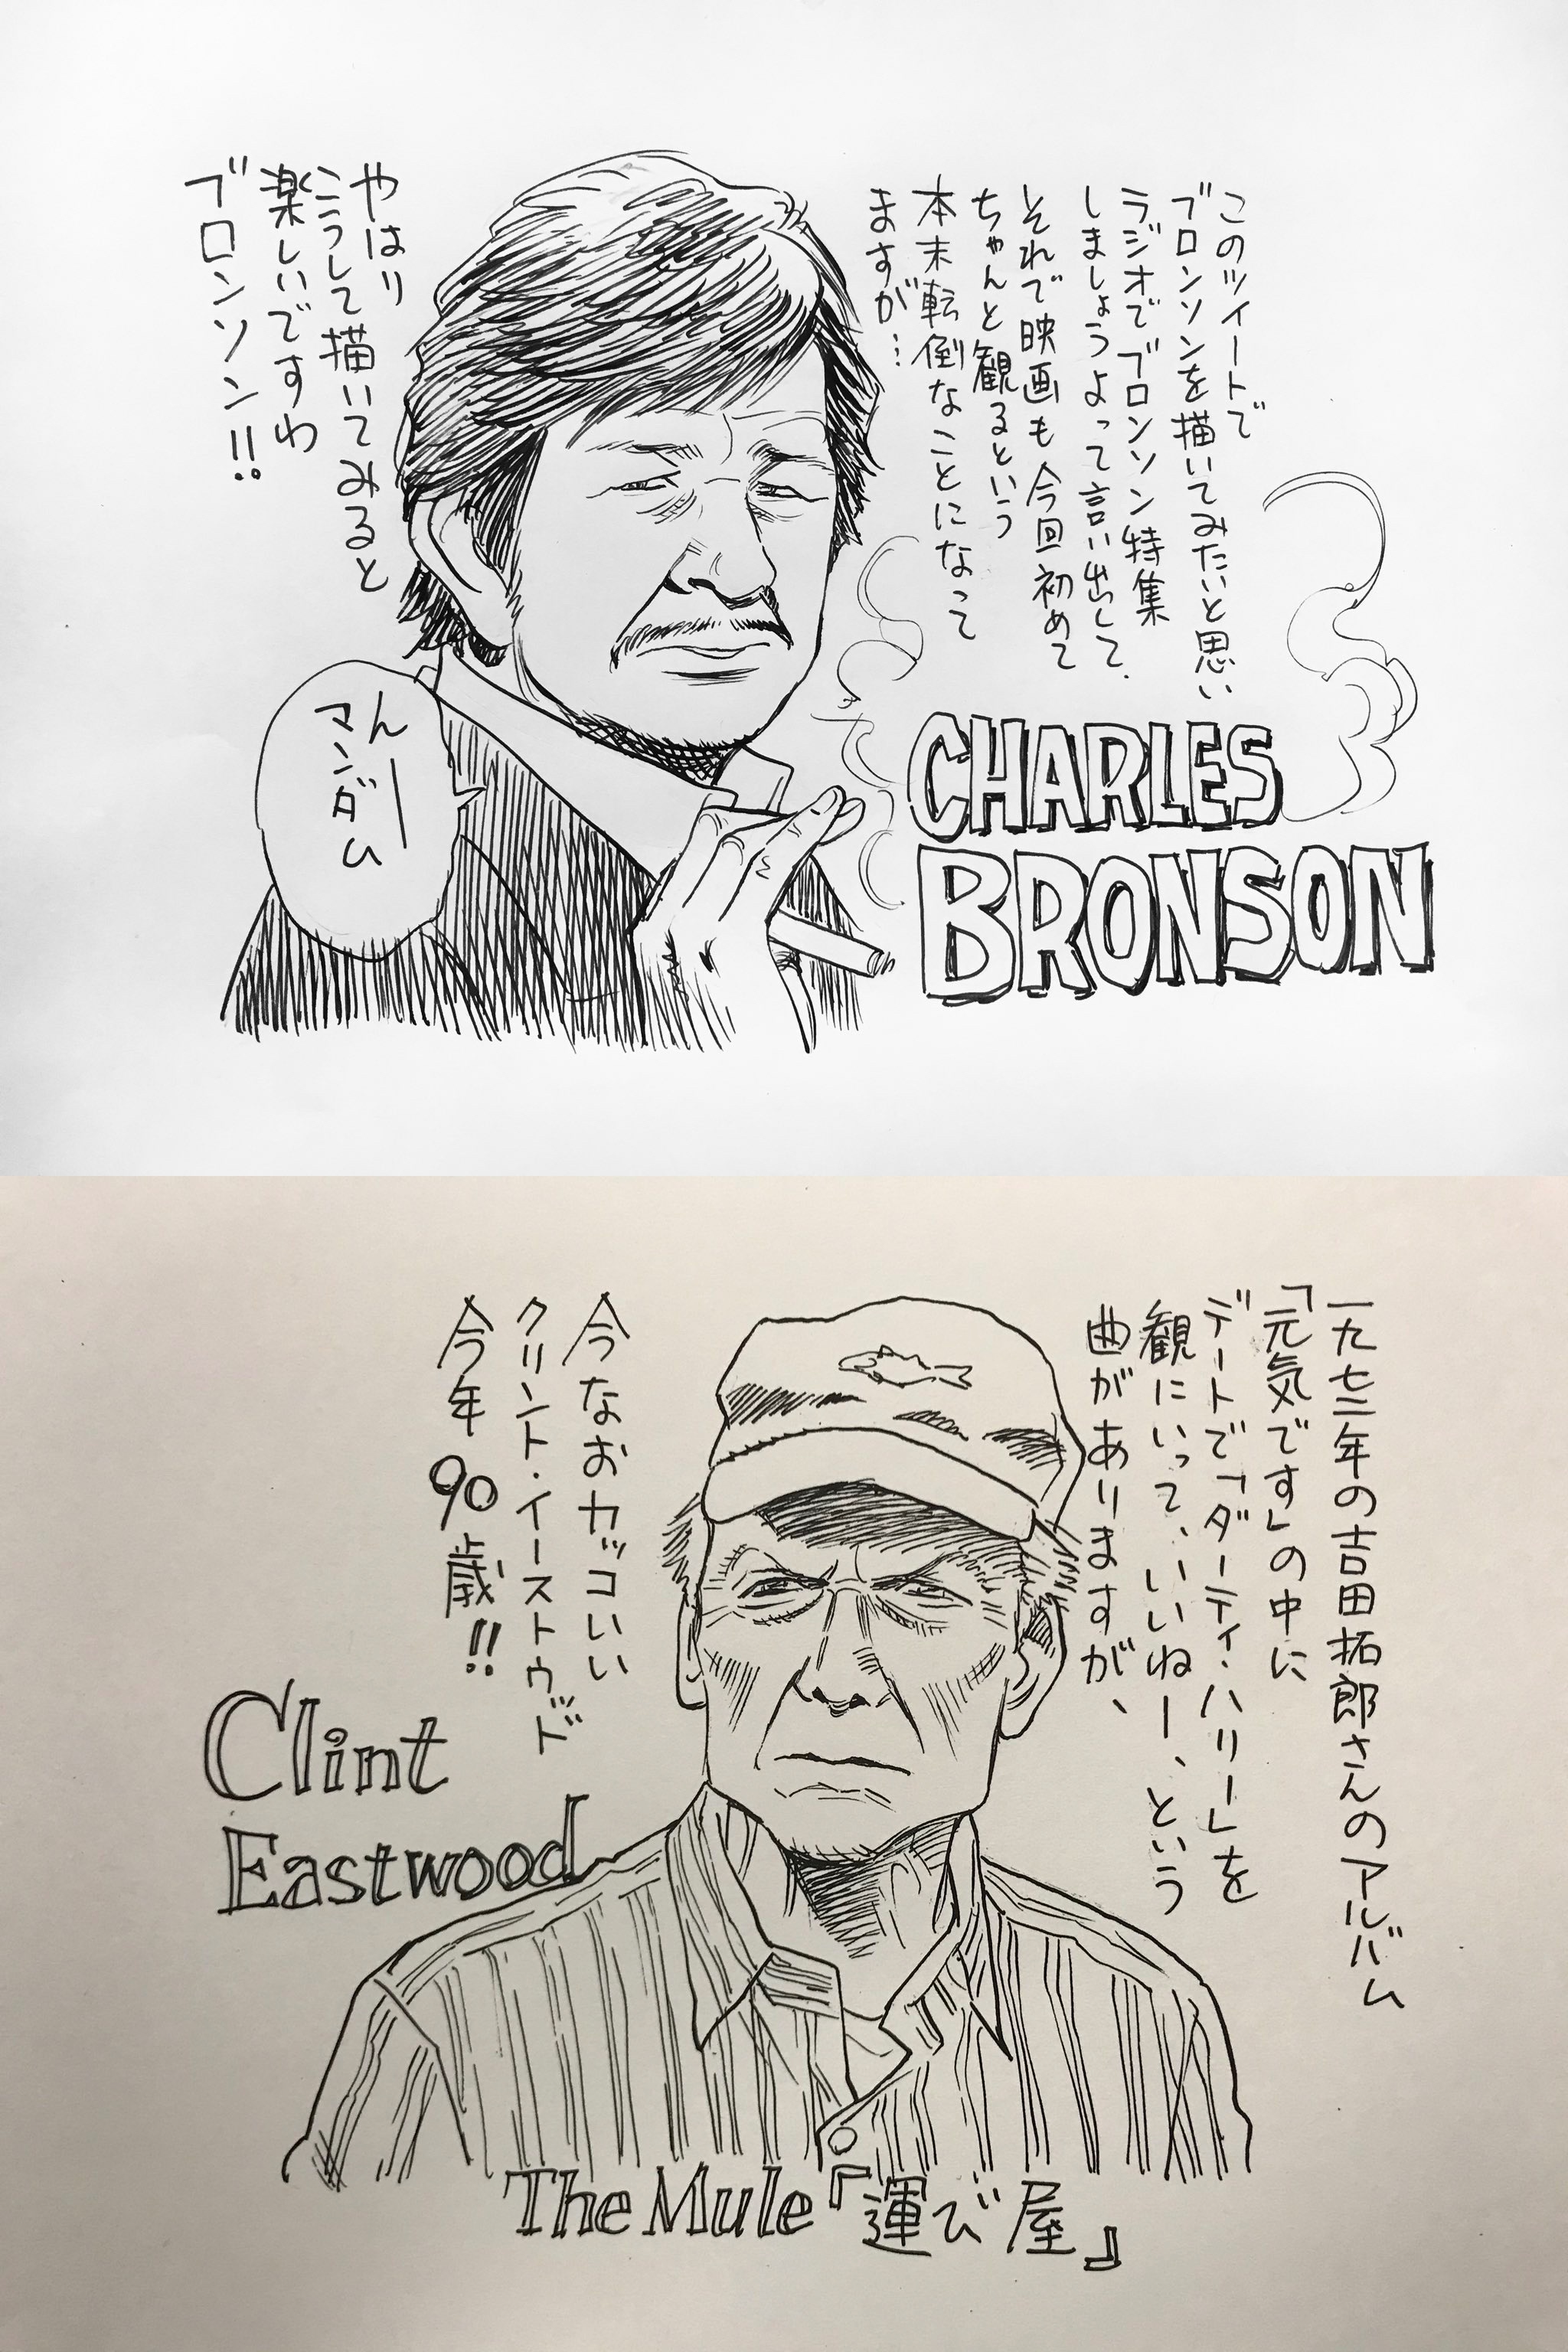 このツイートで
ブロンソンを描いてみたいと思い
ラジオでブロンソン特集
しましょうよって言い出して、
それで映画も今回初めて
ちゃんと観るという
本末転倒なことになって
ますが…
やはり
こうして描いてみると
楽しいですわ
ブロンソン!!
んー
マンダム
CHARLES
BRONSON
一九七二年の吉田拓郎さんのアルバム
「元気です」の中に
デートで「ダーティ・ハリー」を
観にいって、いいねー、という
曲がありますが、
今なおカッコいい
クリント・イーストウッド
今年90歳!!
Clint
Eastwood
The Mule『運び屋』